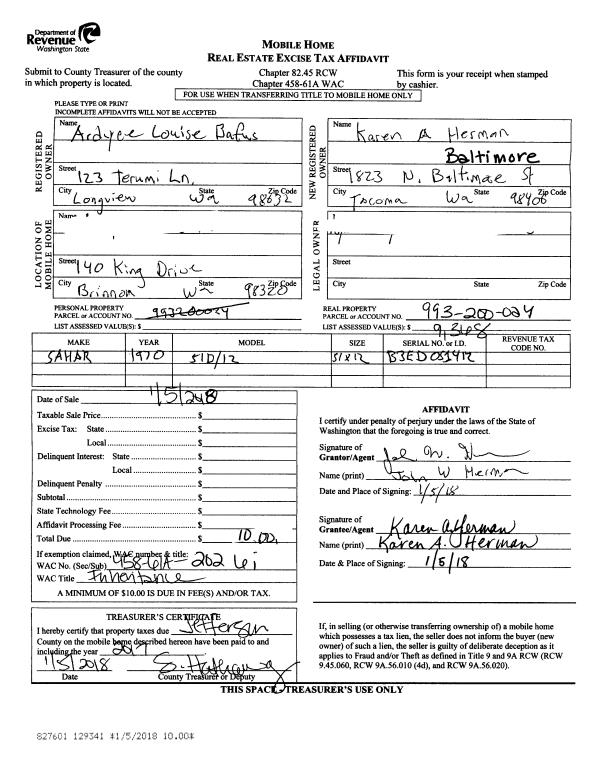 Department of
Revenue
Washington State
MOBILE HOME
REAL ESTATE EXCISE TAX AFFIDAVIT
Submit to County Treasurer of the county
in which property is located.
Chapter 82.45 RCW
Chapter 458-61A WAC
This form is your receipt when stamped
by cashier.
FOR USE WHEN TRANSFERRING TITLE TO MOBILE HOME ONLY
PLEASE TYPE OR PRINT
INCOMPLETE AFFIDAVITS WILL NOT BE ACCEPTED
REGISTERED OWNER
Name Ardyce Louise Bafus
Street 123 Terumi Ln.
City Longview State Wa Zip Code 98632
NEW REGISTERED OWNER
Name Karen A Herman
Baltimore
Street 1823 N. Baltimore St
City Tacoma State Wa Zip Code 98406
LOCATION OF MOBILE HOME
Name
Street 140 King Drive
City Brinnon Wa State Zip Code 98320
LEGAL OWNER
Street
City State Zip Code
PERSONAL PROPERTY
PARCEL or ACCOUNT NO. 993200024
LIST ASSESSED VALUE(S): $
REAL PROPERTY
PARCEL or ACCOUNT NO. 993-200-024
LIST ASSESSED VALUE(S): $ 9,368
MAKE YEAR MODEL SIZE SERIAL NO. or I.D. REVENUE TAX CODE NO.
SAHAR 1970 51D/12 51x12
Date of Sale 1/5/2018
Taxable Sale Price $
Excise Tax: State $
Local $
Delinquent Interest: State $
Local $
Delinquent Penalty $
Subtotal $
State Technology Fee $
Affidavit Processing Fee $
Total Due $ 10.00
If exemption claimed, WAC number & title:
WAC No. (Sec/Sub) 458-61A-202 6i
WAC Title Inheritance
A MINIMUM OF $10.00 IS DUE IN FEE(S) AND/OR TAX.
AFFIDAVIT
I certify under penalty of perjury under the laws of the State of
Washington that the foregoing is true and correct.
Signature of
Grantor/Agent
Name (print) John W Herman
Date and Place of Signing: 1/5/18
Signature of
Grantee/Agent Karen A Herman
Name (print) Karen A. Herman
Date & Place of Signing: 1/5/18
TREASURER'S CERTIFICATE
I hereby certify that property taxes due Jefferson
County on the mobile home described hereon have been paid to and
including the year 2017
1/5/2018
Date County Treasurer or Deputy
If, in selling (or otherwise transferring ownership of) a mobile home
which possesses a tax lien, the seller does not inform the buyer (new
owner) of such a lien, the seller is guilty of deliberate deception as it
applies to Fraud and/or Theft as defined in Title 9 and 9A RCW (RCW
9.45.060, RCW 9A.56.010 (4d), and RCW 9A.56.020).
THIS SPACE - TREASURER'S USE ONLY
827601 129341 *1/5/2018 10.00*